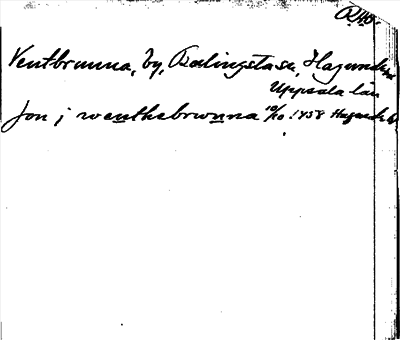 Ventbrunna, by, Balingsta sn, Hagunda hd
Uppsala län
Jon j wenthabrwnna 10/10 1458 Hagunda